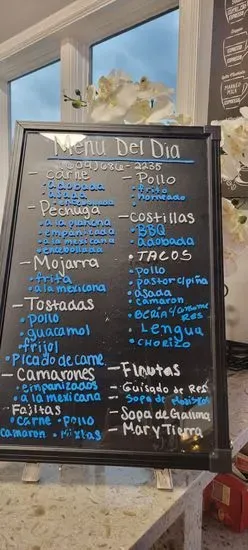 Menu Del Dia
- Carne
• adobada
• asada
• encebollada
- Pechuga
• a la plancha
• empanizada
• a la mexicana
• encebollada
- Mojarra
• frita
• a la mexicana
- Tostadas
• pollo
• guacamol
• frijol
• Picado de carne
- Camarones
• empanizados
• a la mexicana
- Fajitas
• Carne • Pollo
camaron • Mixtas
- Pollo
• frito
• horneado
- Costillas
• BBQ
• adobada
. TACOS
• Pollo
• pastor c/piña
• asada
• camaron
RES
• Lengua
• CHORIZO
- Flautas
- Guisado de Res
- Sopa de
- Sopa de Gallina
- Mar y Tierra
ESPRESSO
ESPRESSO
ESPRESSO
MILK
ESPRESSO